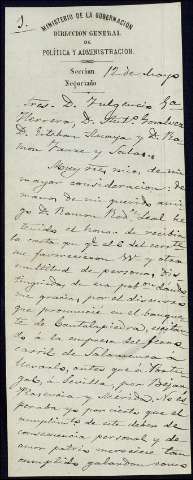 1.
MINISTERIO DE LA GOBERNACION
DIRECCION GENERAL
DE
POLÍTICA Y ADMINISTRACION.
Seccion 12 de mayo
Negociado
Sres. D. Fulgencio
Herrera, D.
D. Esteban y D. Ra-
mon y Salas.
Muy Sres. mios de mi
mayor consideracion: de
manos de mi querido ami-
go D. Ramon Rod.z Leal he
tenido el honor de recibir
la carta que
me favorecieron VV. y otra
multitud de personas, dis-
tinguidas, de esa dando
me gracias, por el discurso
que pronuncié en el banque-
te de Cantalapiedra,
do á la empresa del ferro
carril de Salamanca á
llevarlo, antes que á Portu-
gal, á Sevilla, por Béjar,
Plasencia y Mérida. No es-
peraba yo por cierto que el
cumplimiento de este deber de
conveniencia personal y de
amor patrio mereciese tan
cumplido galardon